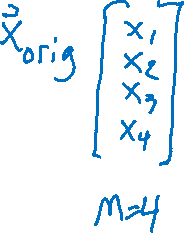 x⃗orig [x₁
x₂
x₃
x₄]
M=4